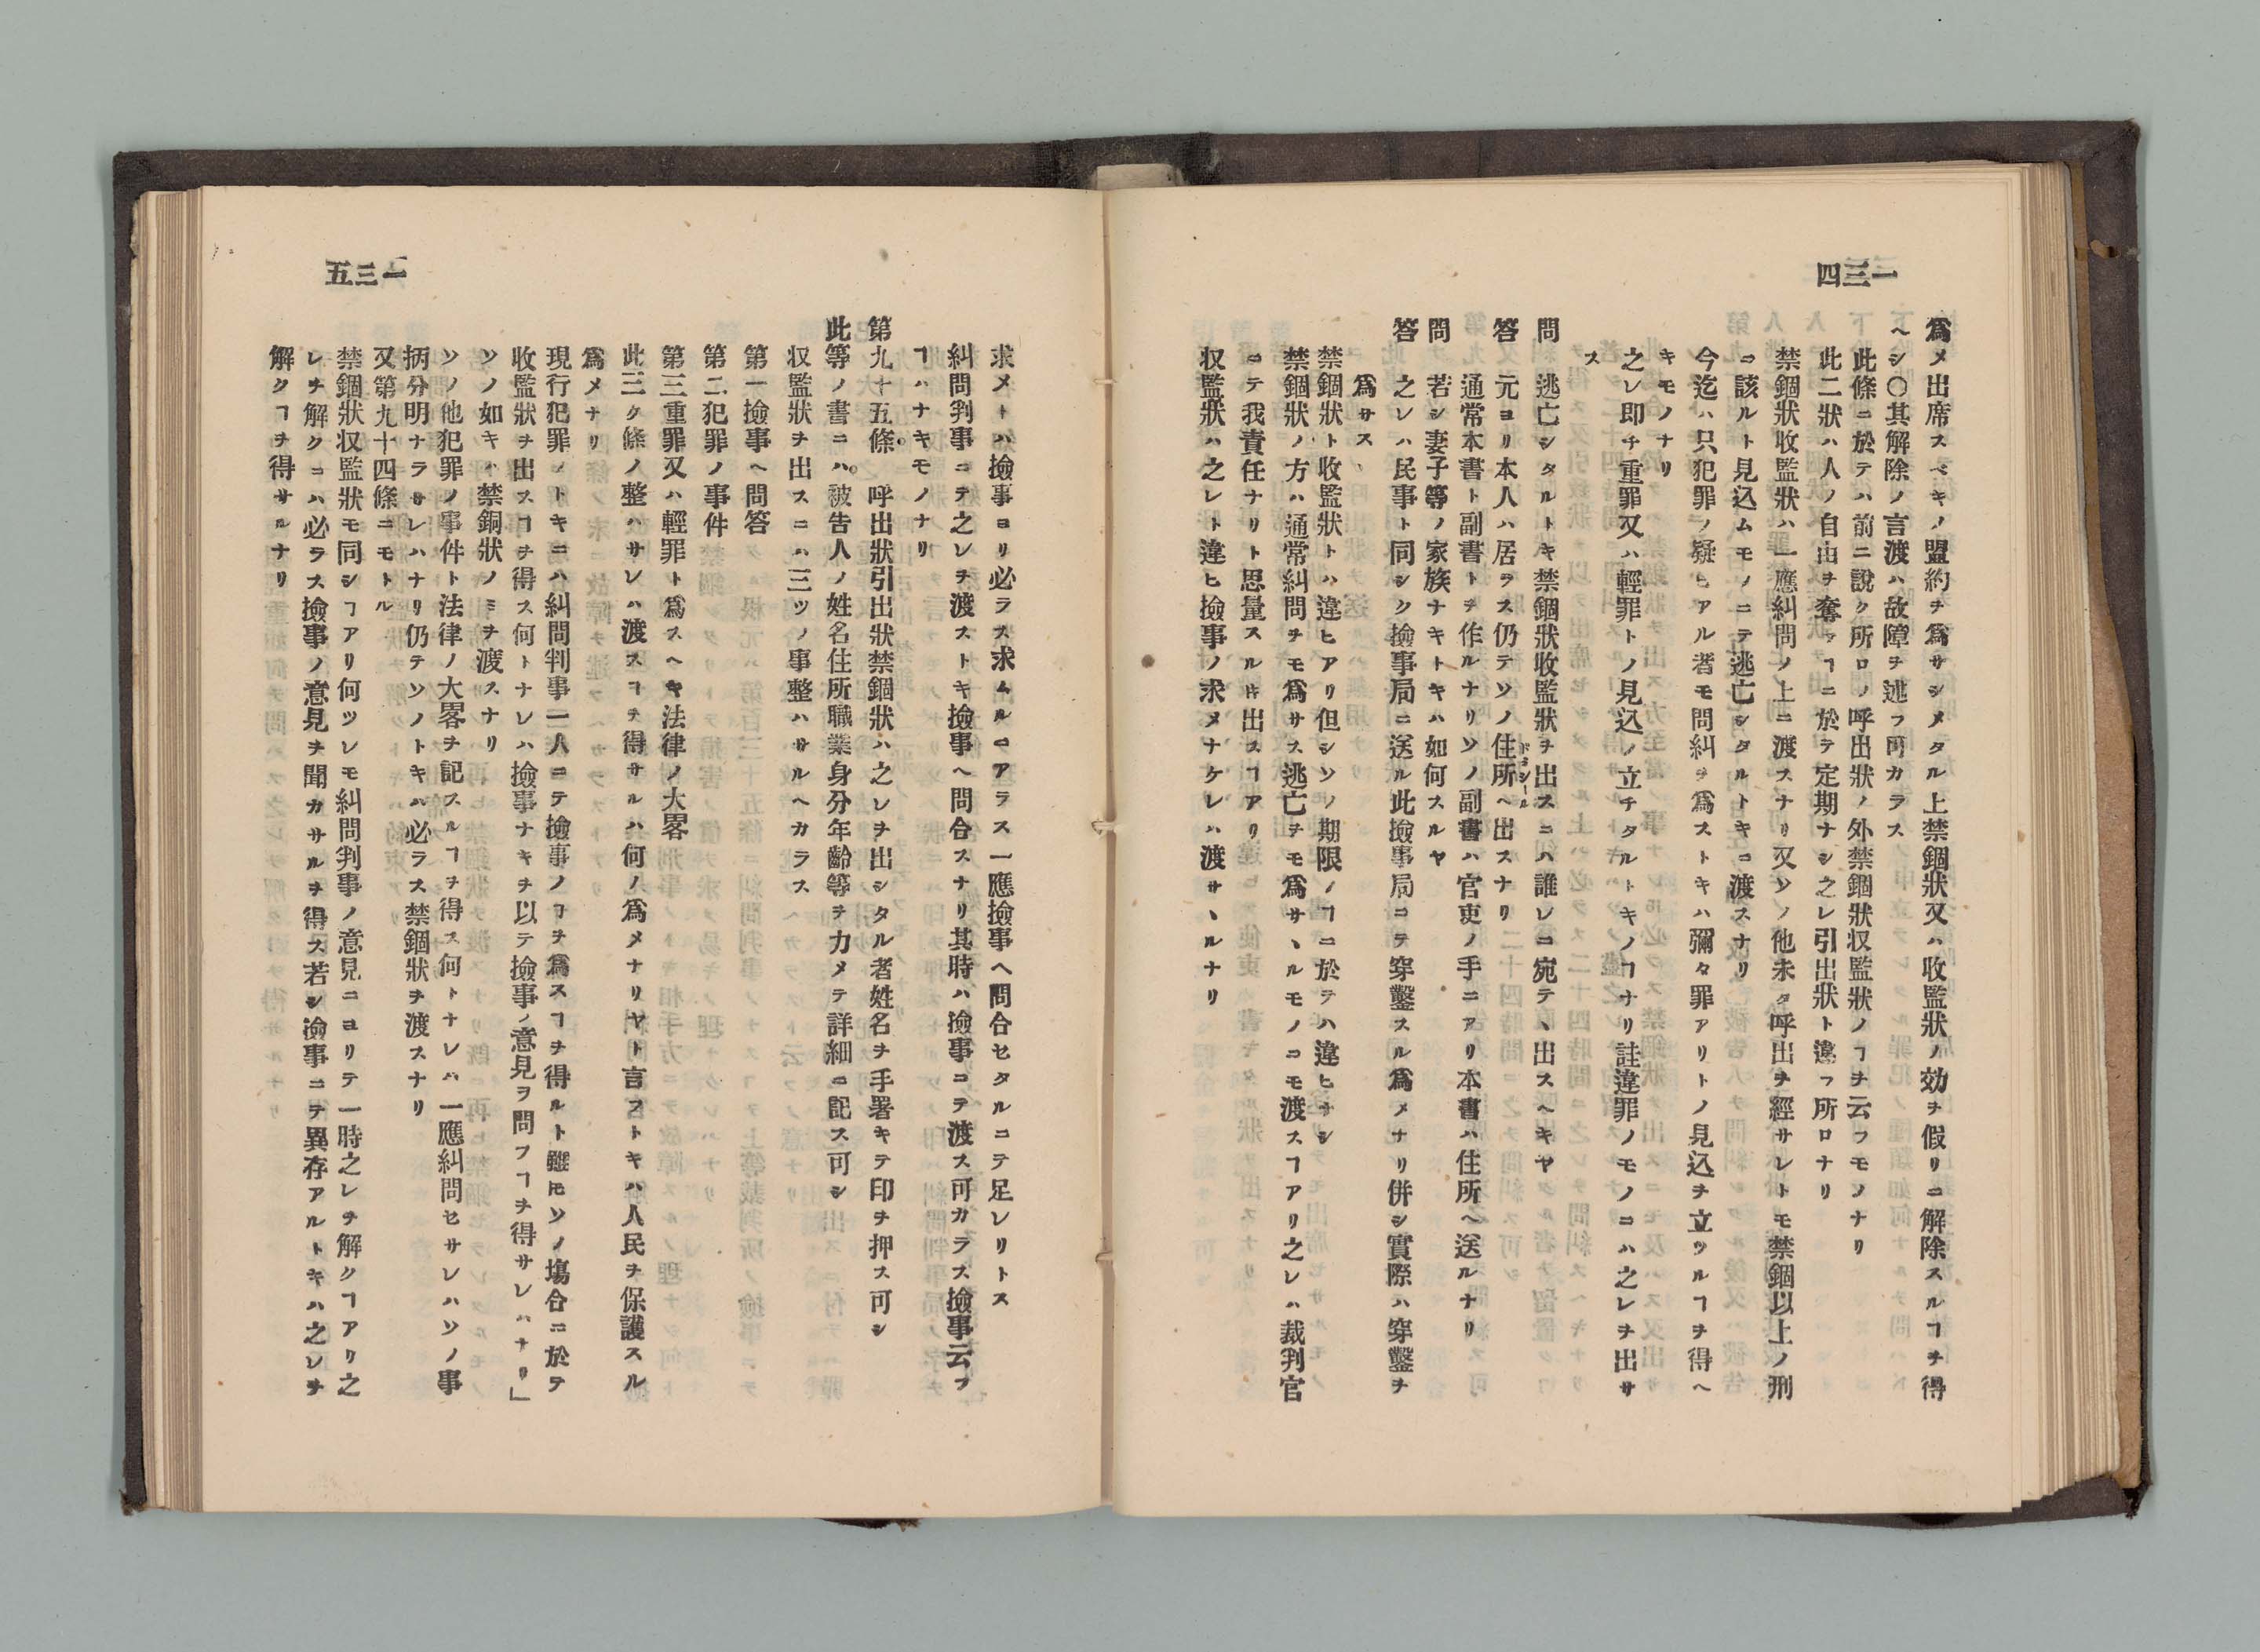 一三四
爲メ出席スベキノ盟約ヲ爲サシメタル上禁錮狀又ハ收監狀ノ効ヲ假リニ解除スルヿヲ得
ヘシ〇其解除ノ言渡ハ故障ヲ述フ可カラス
此條ニ於テハ前ニ說ク所ロノ呼出狀ノ外禁錮狀収監狀ノヿヲ云フモノナリ
此二狀ハ人ノ自由ヲ奪フヿニ於テ定期ナシ之レ引出狀ト違フ所ロナリ
禁錮狀收監狀ハ一應糾問ノ上ニ渡スナリ又ソノ他未タ呼出ヲ經サレトモ禁錮以上ノ刑
ニ該ルト見込ムモノニテ逃亡シタルトキニ渡スナリ
今迄ハ只犯罪ノ疑ヒアル者モ問糾ヲ爲ストキハ彌々罪アリトノ見込ヲ立ツルヿヲ得ヘ
キモノナリ
之レ即チ重罪又ハ輕罪トノ見込ノ立チタルトキノヿナリ註違罪ノモノニハ之レヲ出サ
ス
問　逃亡シタルトキ禁錮狀收監狀ヲ出スニハ誰レニ宛テヽ出スヘキヤ
答　元ヨリ本人ハ居ラス仍テソノ住所ヘ出スナリ
通常本書ト副書トヲ作ルナリソノ副書ハ官吏ノ手ニアリ本書ハ住所ヘ送ルナリ
問　若シ妻子等ノ家族ナキトキハ如何スルヤ
答　之レハ民事ト同シク撿事局ニ送ル此撿事局ニテ穿鑿スル爲メナリ併シ實際ハ穿鑿ヲ
爲サス
禁錮狀ト收監狀トハ違ヒアリ但シソノ期限ノヿニ於テハ違ヒナシ
禁錮狀ノ方ハ通常糾問ヲモ爲サス逃亡ヲモ爲サヽルモノニモ渡スヿアリ之レハ裁判官
ニテ我責任ナリト思量スル時出スヿアリ
収監狀ハ之レト違ヒ撿事ノ求メナケレハ渡サヽルナリ
一三五
求メトハ撿事ヨリ必ラス求ムルニアラス一應撿事ヘ問合セタルニテ足レリトス
糾問判事ニテ之レヲ渡ストキ撿事ヘ問合スナリ其時ハ撿事ニテ渡ス可カラス撿事云フ
ヿハナキモノナリ
第九十五條　呼出狀引出狀禁錮狀ハ之レヲ出シタル者姓名ヲ手署キテ印ヲ押ス可シ
此等ノ書ニハ被告人ノ姓名住所職業身分年齡等ヲ力メテ詳細ニ記ス可シ
収監狀ヲ出スニハ三ツノ事整ハサルヘカラス
第一撿事ヘ問答
第二犯罪ノ事件
第三重罪又ハ輕罪ト爲スヘキ法律ノ大畧
此三ク條ノ整ハサレハ渡スヿヲ得サルハ何ノ爲メナリヤト言フトキハ人民ヲ保護スル
爲メナリ
現行犯罪ノトキニハ糾問判事一人ニテ撿事ノヿヲ爲スヿヲ得ルト雖モソノ塲合ニ於テ
收監狀ヲ出スヿヲ得ス何トナレハ撿事ナキヲ以テ撿事ノ意見ヲ問フヿヲ得サレハナリ」
ソノ如キハ禁錮狀ノミヲ渡スナリ
ソノ他犯罪ノ事件ト法律ノ大畧ヲ記スルヿヲ得ス何トナレハ一應糾問セサレハソノ事
柄分明ナラサレハナリ仍テソノトキハ必ラス禁錮狀ヲ渡スナリ
又第九十四條ニモトル
禁錮狀収監狀モ同シヿアリ何ツレモ糾問判事ノ意見ニヨリテ一時之レヲ解クヿアリ之
レヲ解クニハ必ラス撿事ノ意見ヲ聞カサルヲ得ス若シ撿事ニテ異存アルトキハ之レヲ
解クヿヲ得サルナリ